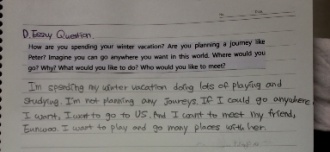 D. Essay Question
How are you spending your winter vacation? Are you planning a journey like
Peter? Imagine you can go anywhere you want in this world. Where would you
go? Why? What would you like to do? Who would you like to meet?
I'm spending my winter vacation doing lots of playing and
studying. I'm not planning any Joureys. If I could go anywhere
I want, I want to go to US. And I want to meet my friend,
Eunwoo. I want to play and go many places with her.